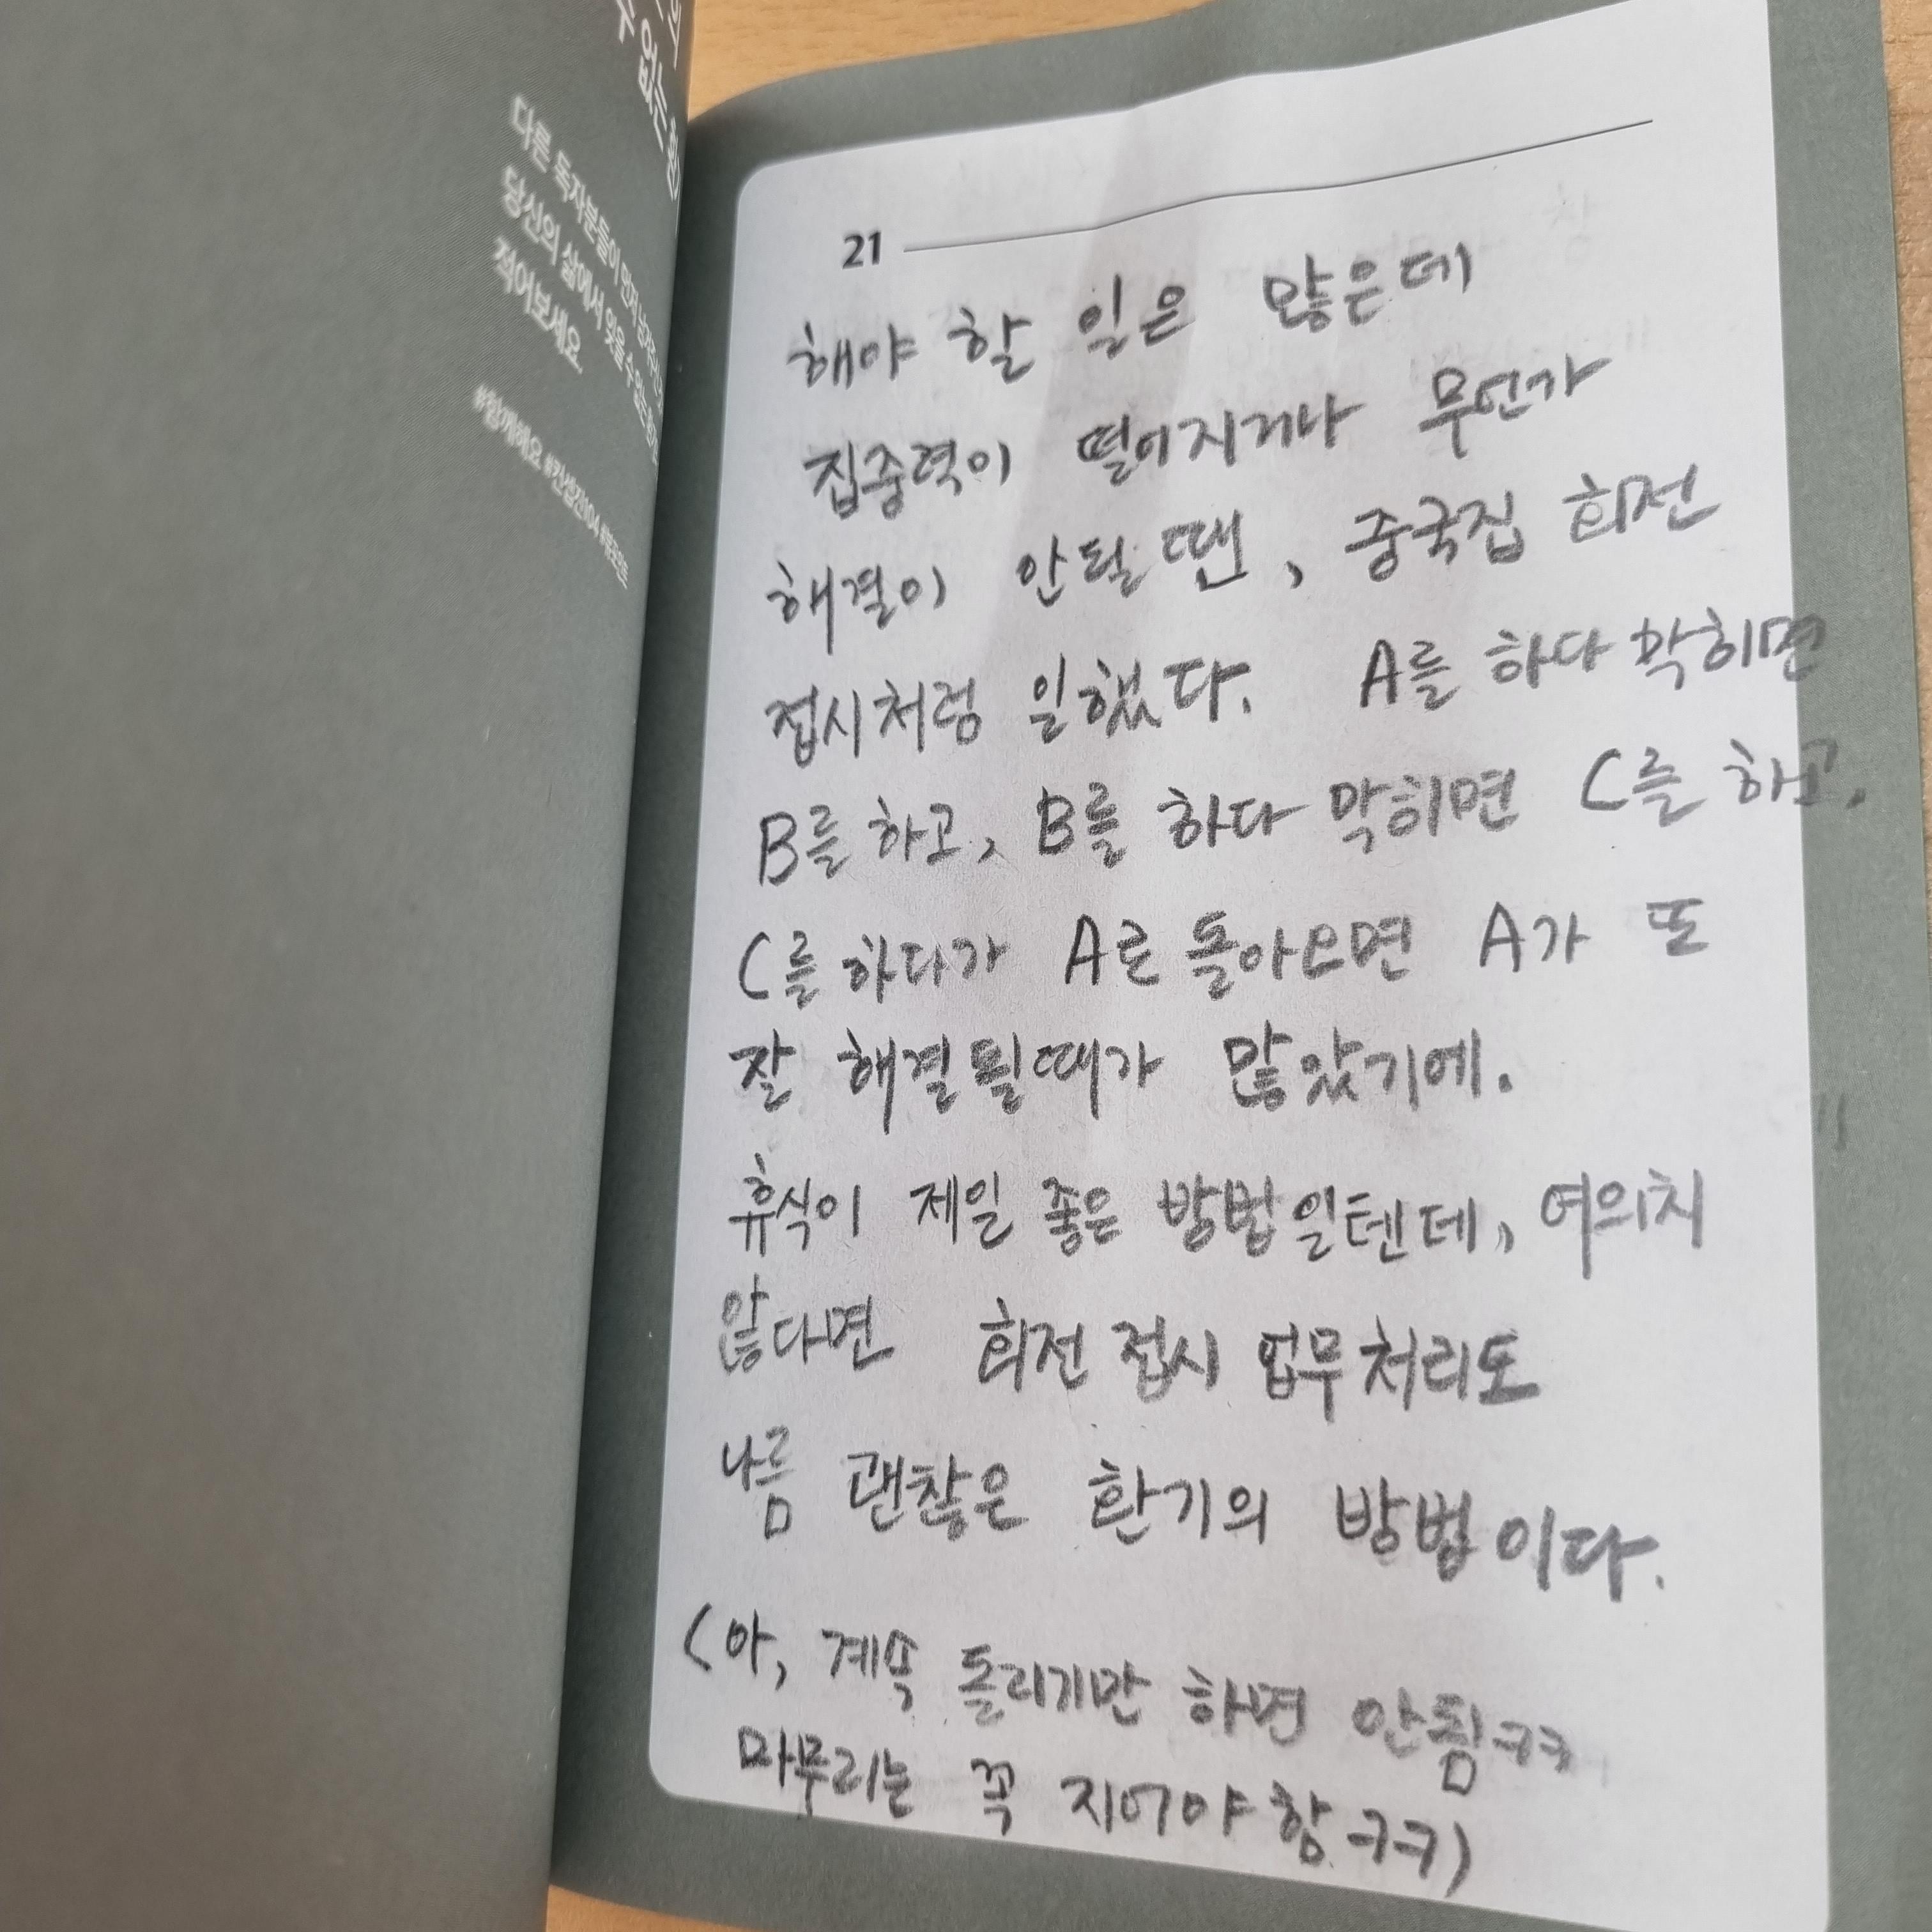 수 없는
다른 독자분들이 먼저
당신의 삶에서 잊을 수 없는
적어보세요.
#함께해요
21
해야 할 일은 많은데
집중력이 떨어지거나 무언가
해결이 안될 땐, 중국집 회전
접시처럼 일했다. A를 하다 막히면
B를 하고, B를 하다 막히면 C를 하고,
C를 하다가 A로 돌아오면 A가 또
잘 해결될때가 많았기에.
휴식이 제일 좋은 방법일텐데, 여의치
않다면 회전 접시 업무처리도
나름 괜찮은 환기의 방법이다.
(아, 계속 돌리기만 하면 안됨ㅋㅋ
마무리는 꼭 지어야 함ㅋㅋ)